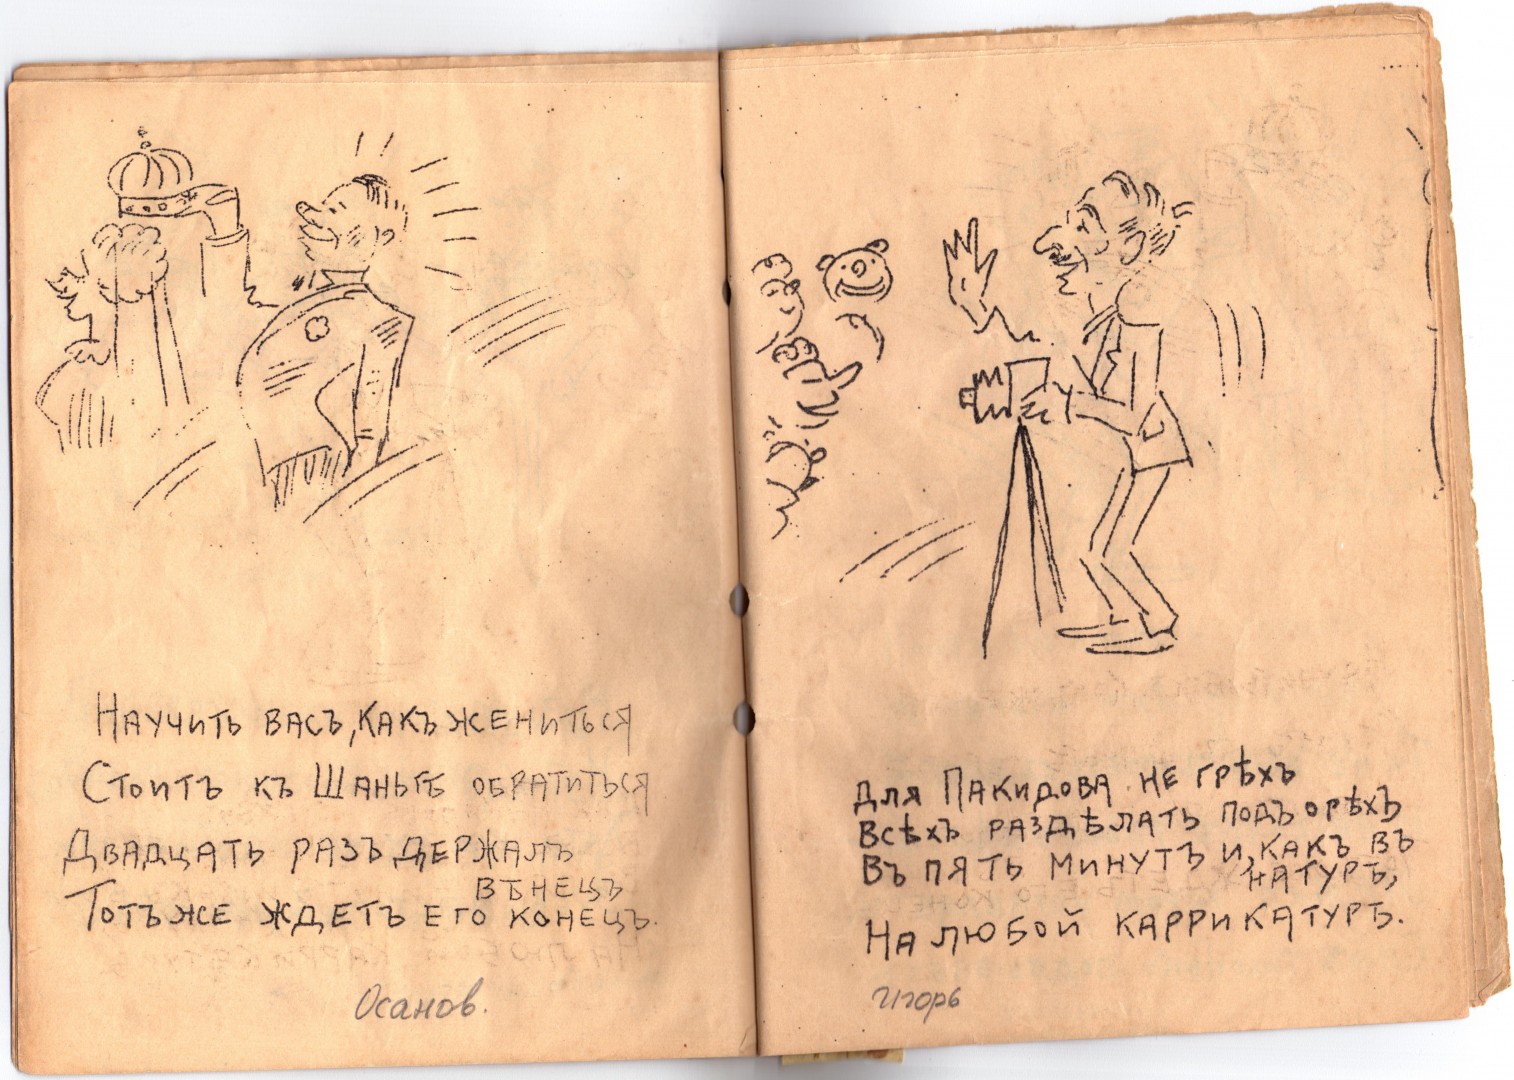 Научить васъ, какъ жениться
Стоитъ къ Шаньгѣ обратиться
Двадцать разъ держалъ
вѣнецъ
Тотъ же ждетъ его конецъ.
Осанов.
Для Пакидова не грѣхъ
Всѣхъ раздѣлать подъ орѣхъ
Въ пять минутъ и, какъ въ
натурѣ,
На любой каррикатурѣ.
Игорь